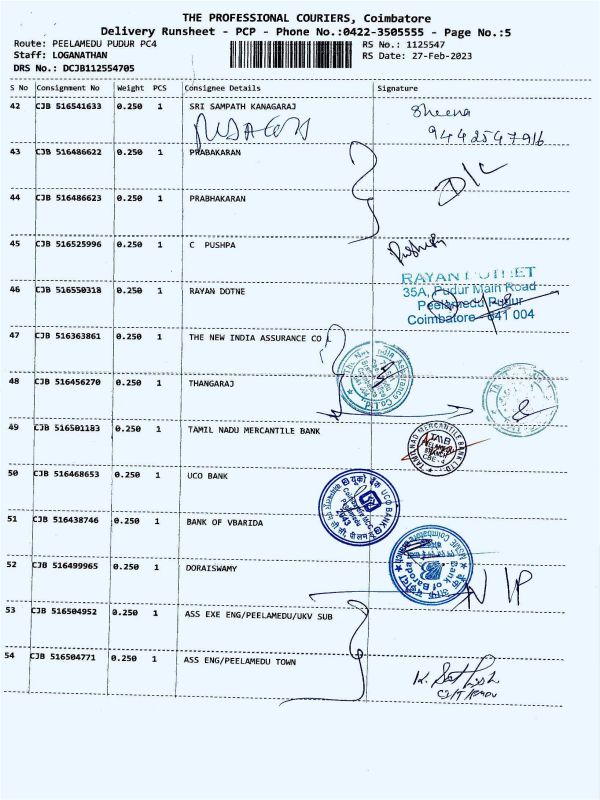 THE PROFESSIONAL COURIERS, Coimbatore
Delivery Runsheet - PCP - Phone No.:0422-3505555 - Page No.:5
Route: PEELAMEDU PUDUR PC4 RS No.: 1125547
Staff: LOGANATHAN RS Date: 27-Feb-2023
DRS No.: DCJB112554705
S No Consignment No Weight PCS Consignee Details Signature
42 CJB 516541633 0.250 1 SRI SAMPATH KANAGARAJ Sheena
9442547916
43 CJB 516486622 0.250 1 PRABAKARAN
D/C
44 CJB 516486623 0.250 1 PRABHAKARAN
45 CJB 516525996 0.250 1 C PUSHPA Pushpa
46 CJB 516550318 0.250 1 RAYAN DOTNE
RAYAN DOTNET
35A, Pudur Main Road
Peelamedu Pudur
Coimbatore - 641 004
47 CJB 516363861 0.250 1 THE NEW INDIA ASSURANCE CO L
48 CJB 516456270 0.250 1 THANGARAJ
49 CJB 516501183 0.250 1 TAMIL NADU MERCANTILE BANK
TAMILNAD MERCANTILE BANK LTD.
TMB
PEELAMEDU
BRANCH
CBE - 4
50 CJB 516468653 0.250 1 UCO BANK
यूको बैंक UCO BANK
2043
51 CJB 516438746 0.250 1 BANK OF VBARIDA
Bank of Baroda
52 CJB 516499965 0.250 1 DORAISWAMY
N/P
53 CJB 516504952 0.250 1 ASS EXE ENG/PEELAMEDU/UKV SUB
54 CJB 516504771 0.250 1 ASS ENG/PEELAMEDU TOWN
K. Sathish